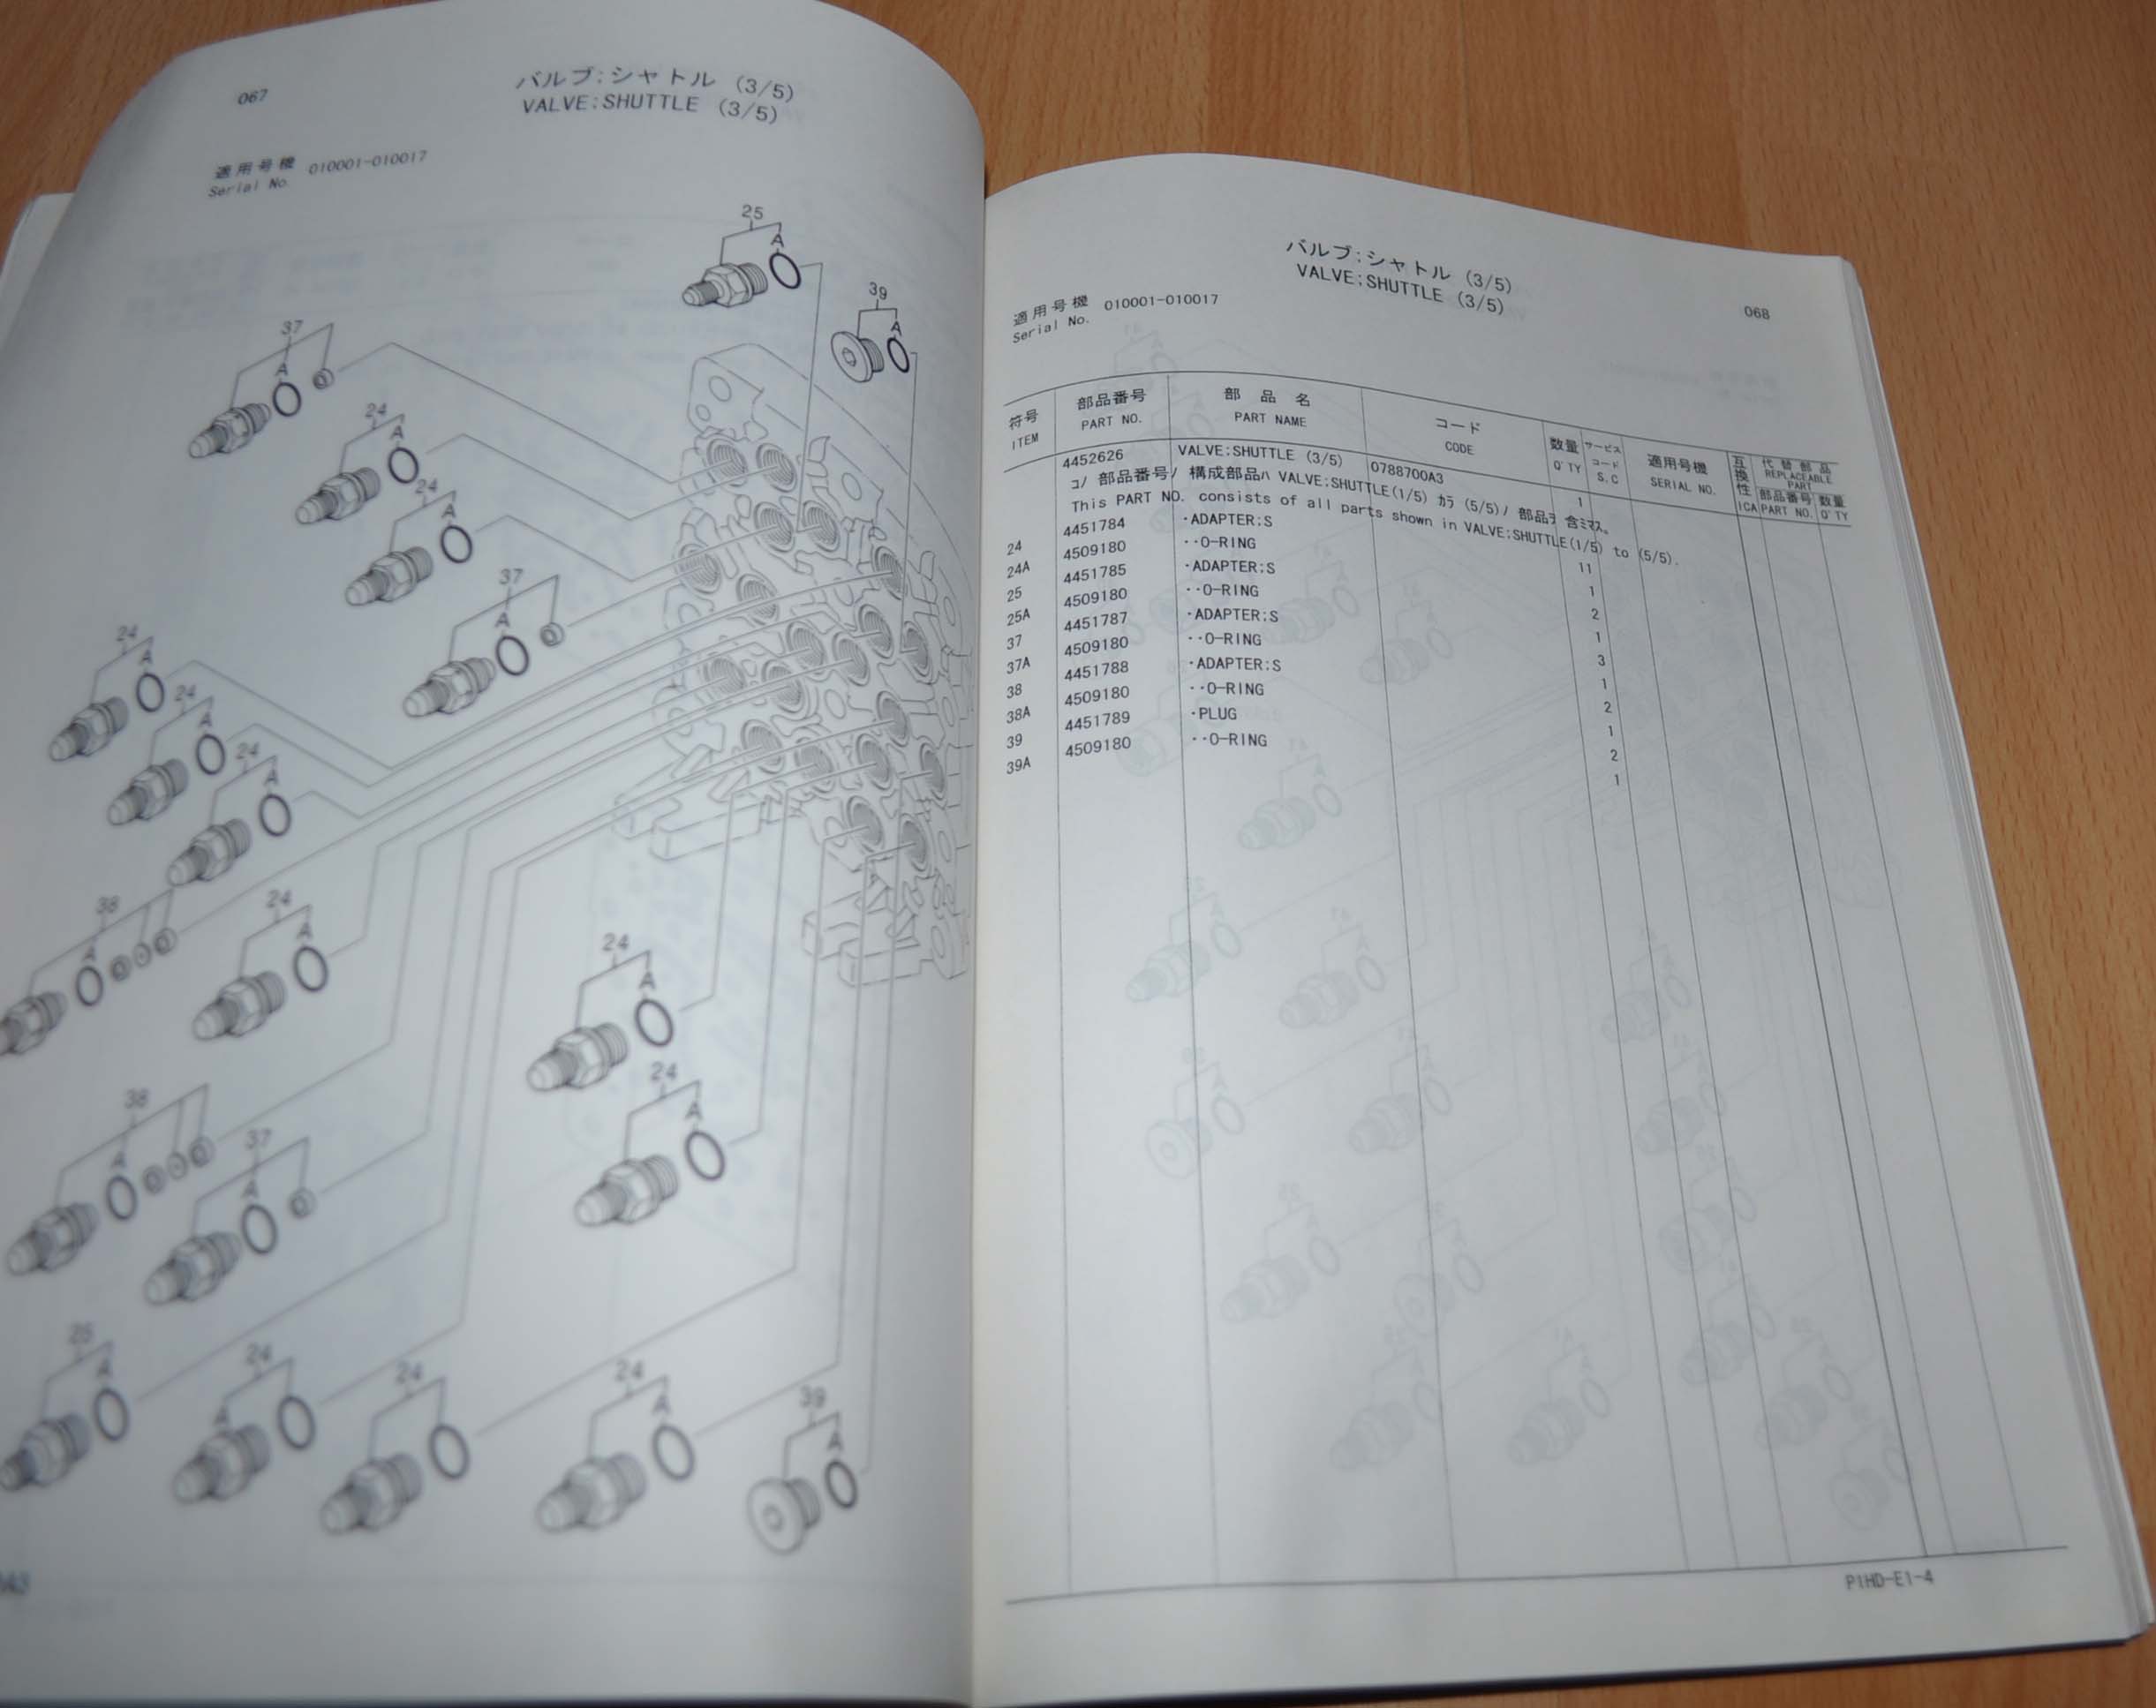 067
バルブ:シャトル (3/5)
VALVE:SHUTTLE (3/5)
適用号機 010001-010017
Serial No.
25
A
39
A
37
A
24
A
24
A
37
A
24
A
24
A
24
A
38
A
24
A
24
A
24
A
38
A
37
A
25
A
24
A
24
24
A
39
A
バルブ:シャトル (3/5)
VALVE:SHUTTLE (3/5)
068
適用号機 010001-010017
Serial No.
符号 部品番号 部品名 コード 数量 サービスコード 適用号機 互換性 代替部品
ITEM PART NO. PART NAME CODE Q'TY S.C SERIAL NO. ICA REPLACEABLE PART
部品番号 数量
PART NO. Q'TY
4452626 VALVE:SHUTTLE (3/5) 0788700A3 1
コノ 部品番号ノ 構成部品ハ VALVE:SHUTTLE(1/5) カラ (5/5)ノ 部品ヲ 含ミマス。
This PART NO. consists of all parts shown in VALVE:SHUTTLE(1/5) to (5/5).
24 4451784 ·ADAPTER:S 11
24A 4509180 ··O-RING 1
25 4451785 ·ADAPTER:S 2
25A 4509180 ··O-RING 1
37 4451787 ·ADAPTER:S 3
37A 4509180 ··O-RING 1
38 4451788 ·ADAPTER:S 2
38A 4509180 ··O-RING 1
39 4451789 ·PLUG 2
39A 4509180 ··O-RING 1
P1HD-E1-4